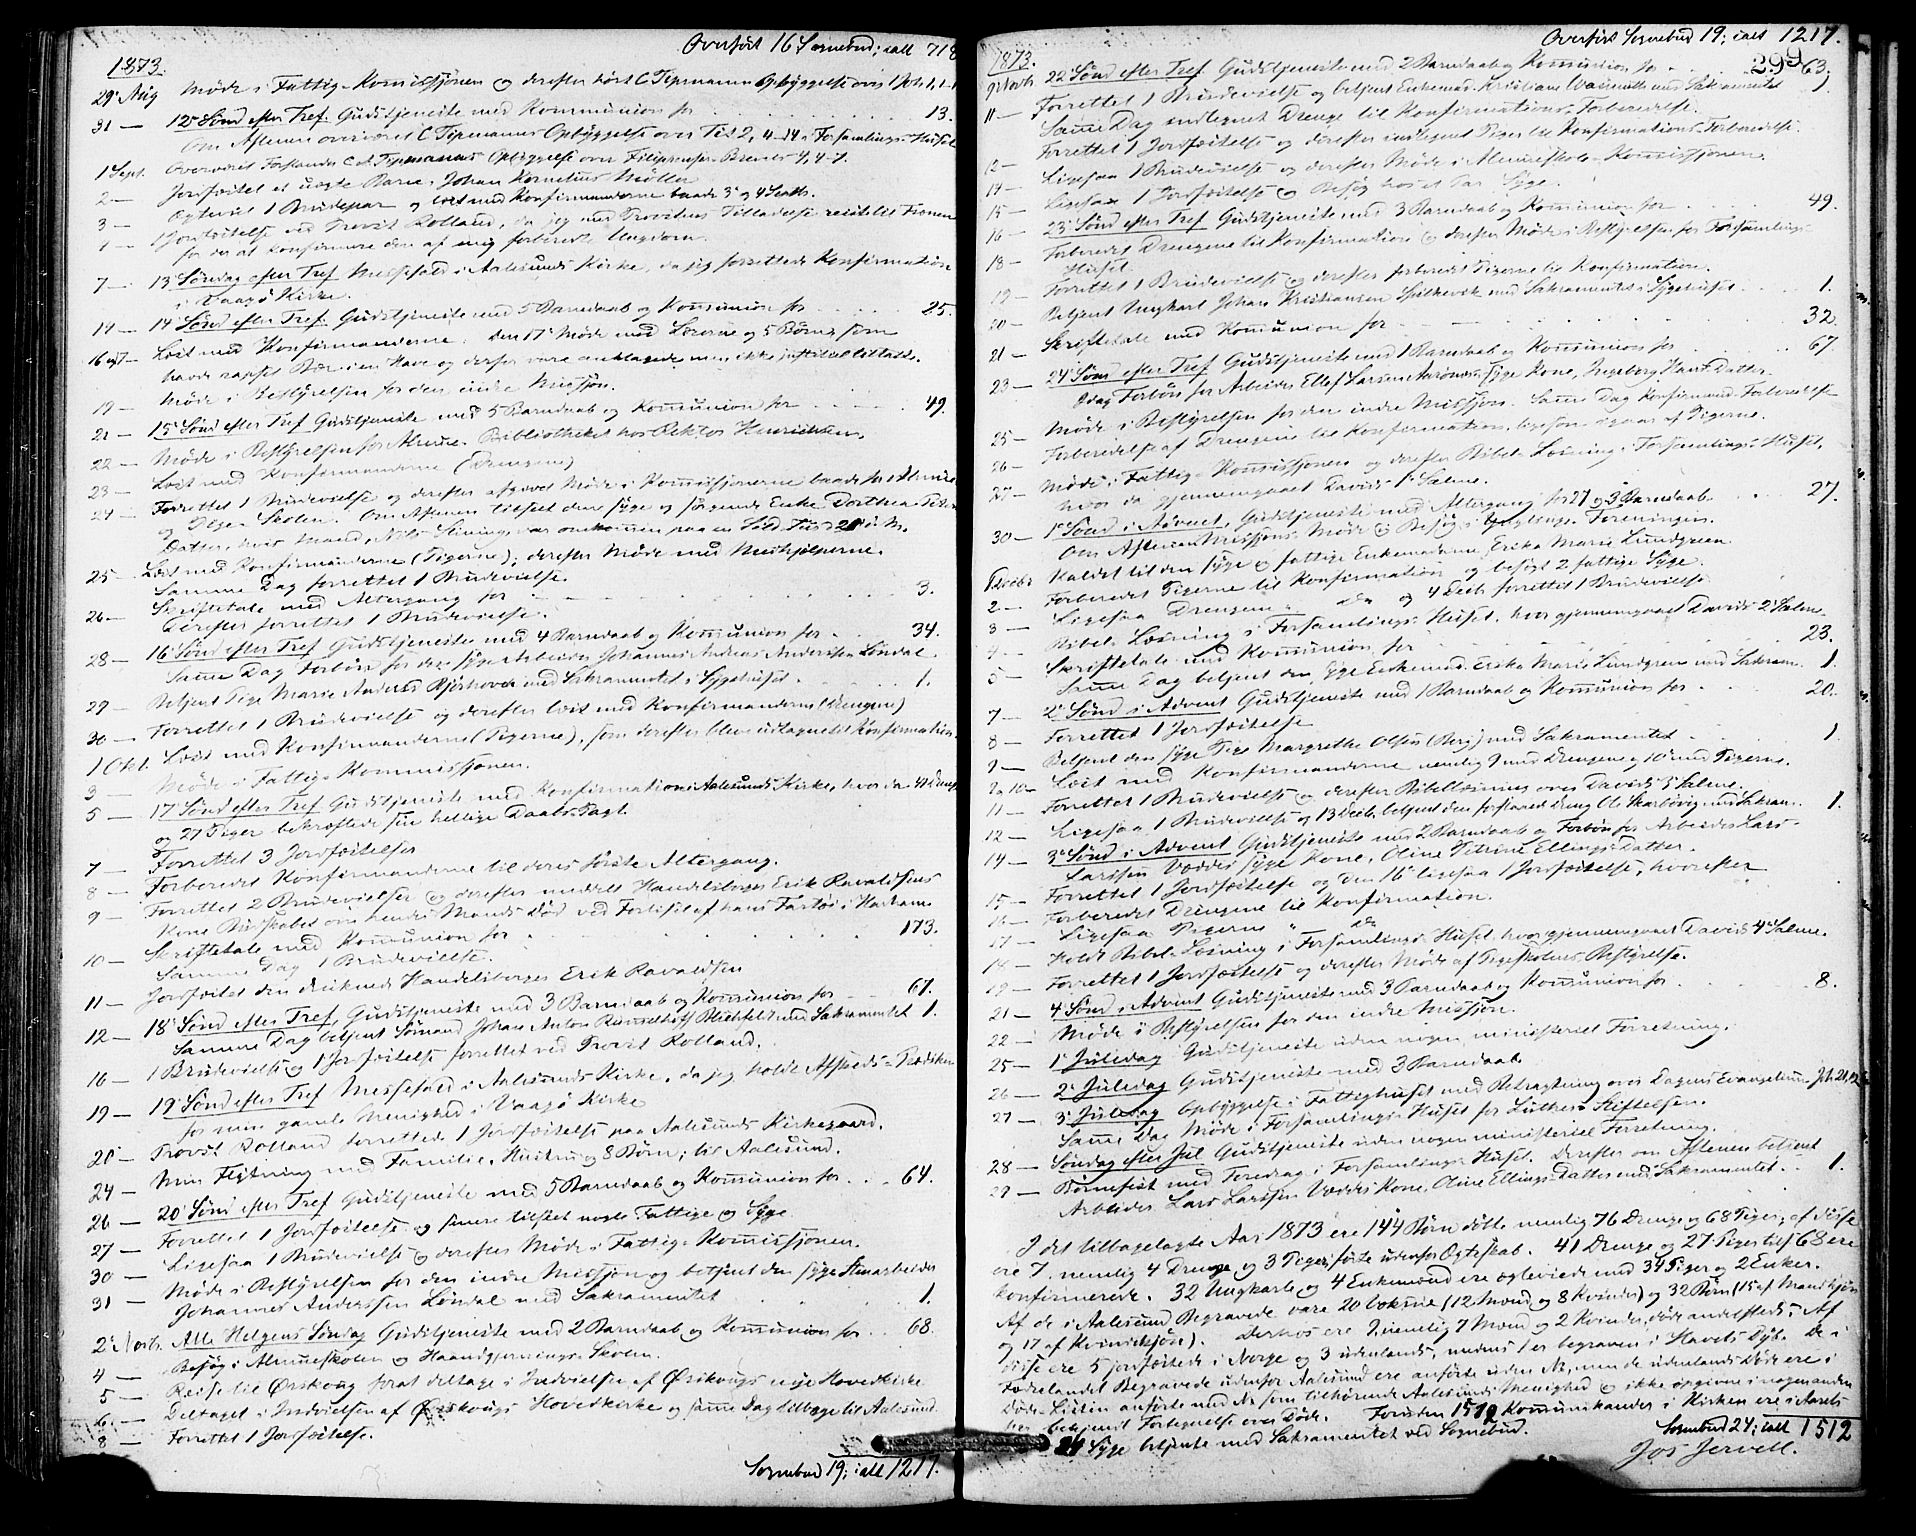 Overført 16 Sognebud; ialt 718
1873.
29 Aug Møde i Fattig-Kommissjonen og derefter hørt C Tepmanns Opbyggelse over 1 Joh. 1, 1-
31 — 12te Sønd efter Tref. Gudstjeneste med Kommunion for 13.
Om Aftenen overværet C Tepmanns Opbyggelse over Tit 2, 11-14 i Forsamlings-Huset
1 Sept. Overværet Forstander C Tepmanns Opbyggelse over Filippenser-Brevet 4, 4-7.
2 — Jordfæstet et uægte Barn, Johan Kornelius Møller
3 — Ægteviet 1 Brudepar og læst med Konfirmanderne baade 3 og 4 Septb.
4 — 1 Jordfæstelse ved Provst Rolland, da jeg med Provstens Tilladelse reiste til
for der at konfirmere den af mig forberedte Ungdom.
7 — 13 Søndag efter Tref Messefald i Aalesunds Kirke, da jeg forrettede Konfirmation
i Vaagø Kirke.
14 — 14 Sønd efter Tref. Gudstjeneste med 5 Barndaab og Kommunion for 25.
16 — Læst med Konfirmanderne. den 17 Møde med Lærerne og 5 Børn, som
havde rappet Bær i en Have og derfor vare anklagede men ikke
19 — Møde i Bestyrelsen for den indre Missjon.
21 — 15 Sønd efter Tref Gudstjeneste med 5 Barndaab og Kommunion for 49.
22 — Møde i Bestyrelsen for Almue-Bibliotheket hos Rektor Henrichsen.
23 — Læst med Konfirmanderne (Drengene)
24 — Forrettet 1 Brudevielse og derefter afgivet Møde i Kommissjonerne baade for Almue
og Skolen. Om Aftenen tilseet den syge og sørgende Enke Dorthea
Datter, hvis Mand, Nils var omkommen paa en
25 — Læst med Konfirmanderne (Pigerne); derefter Møde med Medhjelperne.
Samme Dag forrettet 1 Brudevielse.
26 — Skriftetale med Altergang for 3.
Derefter forrettet 1 Brudevielse.
28 — 16 Sønd efter Tref Gudstjeneste med 4 Barndaab og Kommunion for 34.
Samme Dag Forbøn for den syge Arbeider Johannes Andreas Anderssen Løndal.
29 — Betjent Pige Marie Anderds Bjørhovde med Sakramentet i Sygehuset. 1.
30 — Forrettet 1 Brudevielse og derefter læst med Konfirmanderne (Drengene)
1 Okt. Læst med Konfirmanderne (Pigerne), som derefter bleve udtagne til Konfirmation.
3 — Møde i Fattig-Kommissjonen.
5 — 17 Sønd efter Tref Gudstjeneste med Konfirmation i Aalesunds Kirke, hvor da 41 Drenge
og 27 Piger bekræftede sin hellige Daabs-Pagt.
7 — Forrettet 3 Jordfæstelser
8 — Forberedet Konfirmanderne til deres første Altergang.
9 — Forrettet 2 Brudevielser og derefter meddelt Handelsborger Erik Ravaldsens
Kone Budskabet om hendes Mands Død ved Forliset af hans Fartøi i Harham
10 — Skriftetale med Kommunion for 173.
Samme Dag 1 Brudevielse.
11 — Jordfæstet den druknede Handelsborger Erik Ravaldsen
12 — 18 Sønd efter Tref, Gudstjeneste med 3 Barndaab og Kommunion for 61.
Samme Dag betjent Sømand Johan Anton Blichfeldt med Sakramentet 1.
16 — 1 Brudevielse og 1 Jordfæstelse forrettet ved Provst Rolland.
19 — 19 Sønd efter Tref Messefald i Aalesunds Kirke, da jeg holdt Afskeds-Prædiken
for min gamle Menighed i Vaagø Kirke
20 — Provst Rolland forrettede 1 Jordfæstelse paa Aalesunds Kirkegaard.
24 — Min Flytning med Familie, Hustru og 8 Børn, til Aalesund.
26 — 20 Sønd efter Tref Gudstjeneste med 5 Barndaab og Kommunion for 64.
27 — Forrettet 1 Jordfæstelse og senere tilseet nogle Fattige og Syge
30 — Ligesaa 1 Brudevielse og derefter Møde i Fattig-Kommissjonen.
31 — Møde i Bestyrelsen for den indre Missjon og betjent den syge Stenarbeider
Johannes Anderssen Løndal med Sakramentet 1.
2 Novb. Alle Helgens Søndag Gudstjeneste med 2 Barndaab og Kommunion for 68.
4 — Besøg i Almueskolen og Haandgjernings-Skolen.
5 — Reise til Ørskoug forat deltage i Indvielsen af Ørskougs nye Hovedkirke
6 — Deltaget i Indvielsen af Ørskougs Hovedkirke og samme Dag tilbage til Aalesund.
8 — Forrettet 1 Jordfæstelse.
Sognebud 19; ialt 1217.
Overført Sognebud 19; ialt 1217.
299
1873.
9 Novb. 22 Sønd efter Tref. Gudstjeneste med 2 Barndaab og Kommunion for 63.
11 — Forrettet 1 Brudevielse og betjent Enkemad. Kristiane med Sakramentet 1
Samme Dag indtegnet Drenge til Konfirmations-Forberedelse.
12 — Forrettet 1 Jordfæstelse og derefter indtegnet Piger til Konfirmations-Forberedelse.
14 — Ligesaa 1 Brudevielse og derefter Møde i Almueskole-Kommissjonen.
15 — Ligesaa 1 Jordfæstelse og Besøg hos et Par Syge.
16 — 23 Sønd efter Tref Gudstjeneste med 3 Barndaab og Kommunion for 49.
18 — Forberedt Drengene til Konfirmation og derefter Møde i Bestyrelsen for Forsamlings-
Huset.
19 — Forrettet 1 Brudevielse og derefter forberedt Pigerne til Konfirmation.
20 — Betjent Ungkarl Johan Kristiansen Spilkevik med Sakramentet i Sygehuset 1.
21 — Skriftetale med Kommunion for 32.
23 — 24 Sønd efter Tref Gudstjeneste med 1 Barndaab og Kommunion for 67
Idag Forbøn for Arbeider Ellef Larsen syge Kone, Ingeborg Datter.
25 — Møde i Bestyrelsen for den indre Missjon. Samme Dag Konfirmand-Forberedelse
26 — Forberedelse af Drengene til Konfirmation, ligesom igaar af Pigerne.
27 — Møde i Fattig-Kommissjonen og derefter Bibel-Læsning i Forsamlings-Huset,
hvor da gjennemgaaet Davids 1 Salme.
30 — 1 Sønd i Advent, Gudstjeneste med Altergang for 27 og 3 Barndaab. 27.
Om Aftenen Missjons-Møde og Besøg i Ynglings-Foreningen.
1 Decbr Kaldet til den syge og fattige Enkemadame Erika Marie Lundgreen
2 — Forberedt Pigerne til Konfirmation og besøgt 2 fattige Syge.
3 — Ligesaa Drengene " do og 4 Decb. forrettet 1 Brudevielse
4 — Bibel-Læsning i Forsamlings-Huset, hvor gjennemgaaet Davids 2 Salme.
5 — Skriftetale med Kommunion for 23.
Samme Dag betjent den syge Enkemad. Erika Marie Lundgren med Sakram. 1.
7 — 2 Sønd i Advent Gudstjeneste med 1 Barndaab og Kommunion for 20.
8 — Forrettet 1 Jordfæstelse
9 — Betjent den syge Pige Margrethe Olsen (Berg) med Sakramentet 1
9 og 10 — Læst med Konfirmanderne nemlig 9 med Drengene og 10 med Pigerne.
11 — Forrettet 1 Brudevielse og derefter Bibellæsning over Davids 3 Salme.
12 — Ligesaa 1 Brudevielse og 13 Decb. betjent den Dreng Ole Skarbøvig med Sakram. 1.
14 — 3 Sønd i Advent Gudstjeneste med 2 Barndaab og Forbøn for Arbeider Lars
Larssen Vædde's syge Kone, Oline Petrine Ellings-Datter.
15 — Forrettet 1 Jordfæstelse og den 16 ligesaa 1 Jordfæstelse, hvorefter
16 — Forberedt Drengene til Konfirmation.
17 — Ligesaa Pigerne " do
18 — Holdt Bibel-Læsning i Forsamlings-Huset, hvor gjennemgaaet Davids 4 Salme.
19 — Forrettet 1 Jordfæstelse og derefter Møde af Pigeskolens Bestyrelse.
21 — 4 Sønd i Advent Gudstjeneste med 3 Barndaab og Kommunion for 8.
22 — Møde i Bestyrelsen for den indre Missjon.
25 — 1 Juledag Gudstjeneste uden nogen ministeriel Forretning.
26 — 2 Juledag Gudstjeneste med 3 Barndaab.
27 — 3 Juledag Opbyggelse i Fattighuset med Betragtning over Dagens Evangelium
Samme Dag Møde i Forsamlings-Huset for Luther-Stiftelsen.
28 — Søndag efter Jul Gudstjeneste uden nogen ministeriel Forretning.
29 — Børnefest med Foredrag i Forsamlings-Huset. Derefter om Aftenen betjent
Arbeider Lars Larssen Væddes Kone, Oline Ellings-Datter med Sakramentet. 1.
I det tilbagelagte Aar 1873 ere 144 Børn døbte nemlig 76 Drenge og 68 Piger; af disse
ere 7, nemlig 4 Drenge og 3 Piger, fødte udenfor Ægteskab. 41 Drenge og 27 Piger tils 68 ere
konfirmerede. 32 Ungkarle og 4 Enkemænd ere ægteviede med 34 Piger og 2 Enker.
Af de i Aalesund Begravede vare 20 Voksne (12 Mænd og 8 Kvinder) og 32 Børn (15 af Mandkjøn
og 17 af Kvindekjøn). Derhos ere 9, nemlig 7 Mænd og 2 Kvinder, døde andetsteds; Af
disse ere 5 jordfæstede i Norge og 3 udenlands, medens 1 er begraven i Havets Dyb. De i
Fædrelandet Begravede udenfor Aalesund ere anførte uden Nr, men de udenlands Døde ere i
Døds-Listen anførte med Nr som tilhørende Aalesunds Menighed og ikke opgivne i nogen anden
Fortegnelse over Døde. Foruden 1512 Kommunikanter i Kirken ere i Aaret
24 Syge betjente med Sakramentet ved Sognebud.
Sognebud 24; ialt 1512
Jos Jervell.